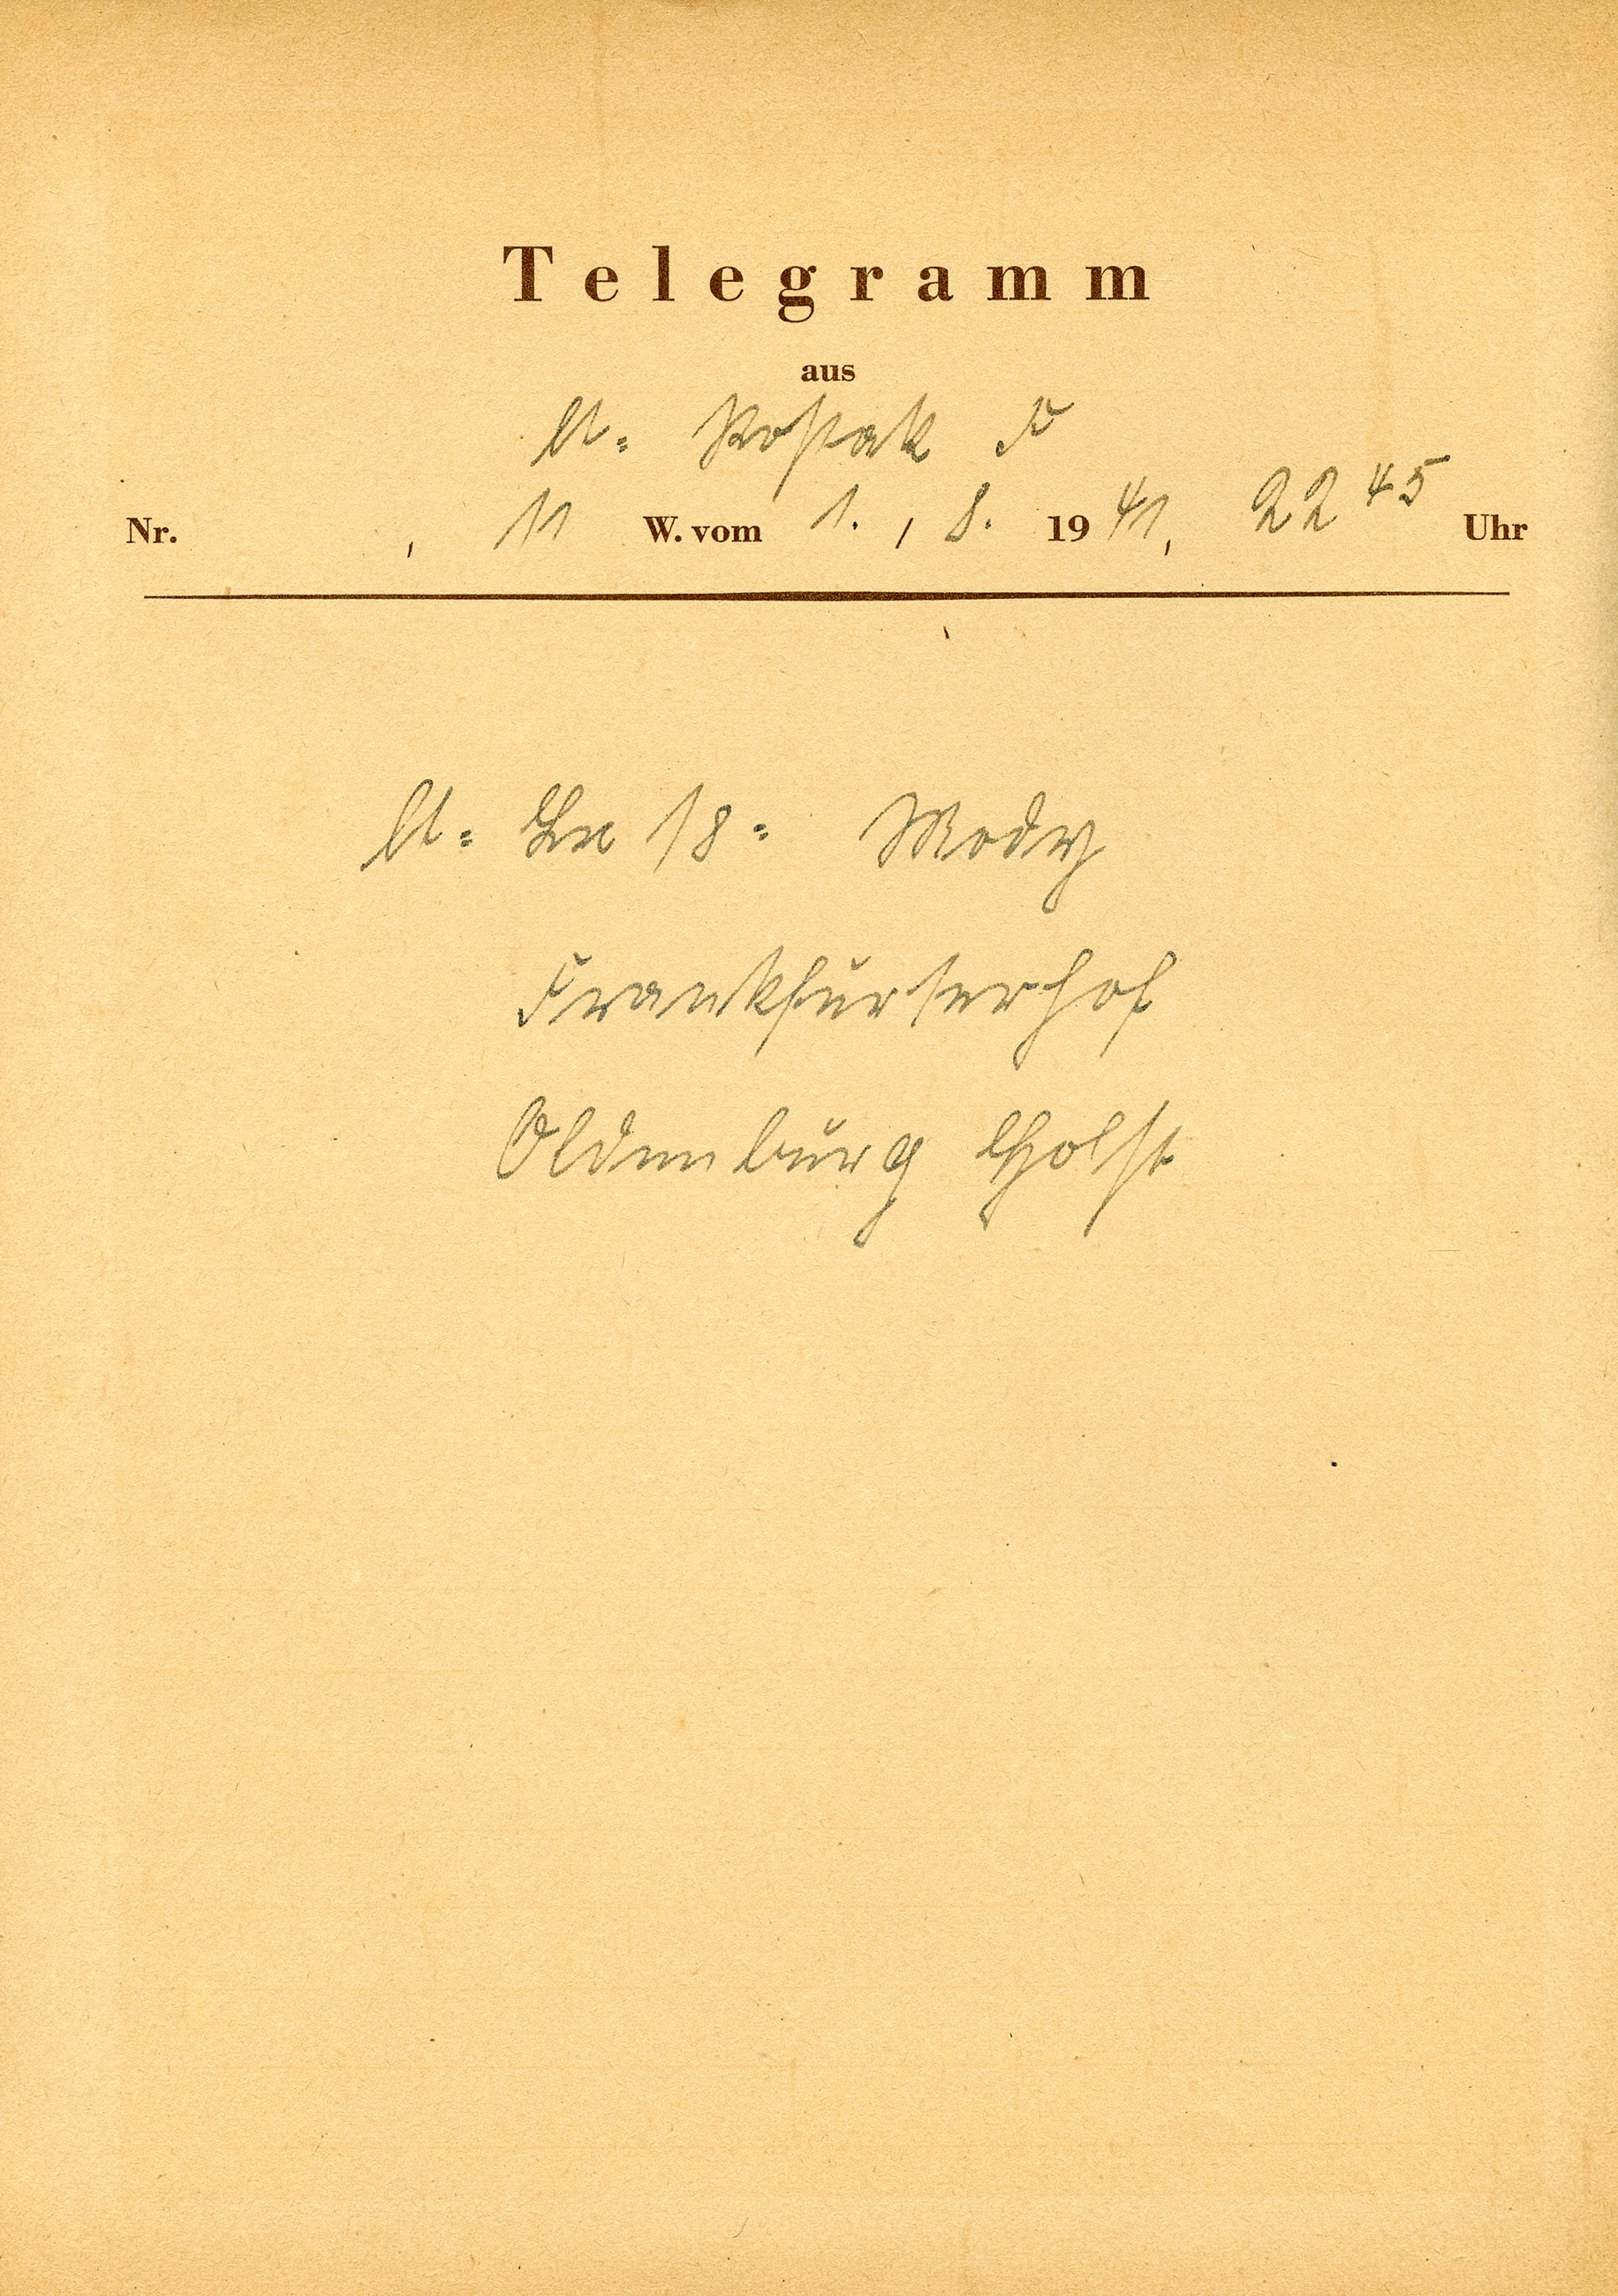 Telegramm
aus
lt. Rostock F
Nr. , 11 W. vom 1. , 8. 1941, 22 45 Uhr
lt. Lx 18 =
Frankfurterhof
Oldenburg Holst